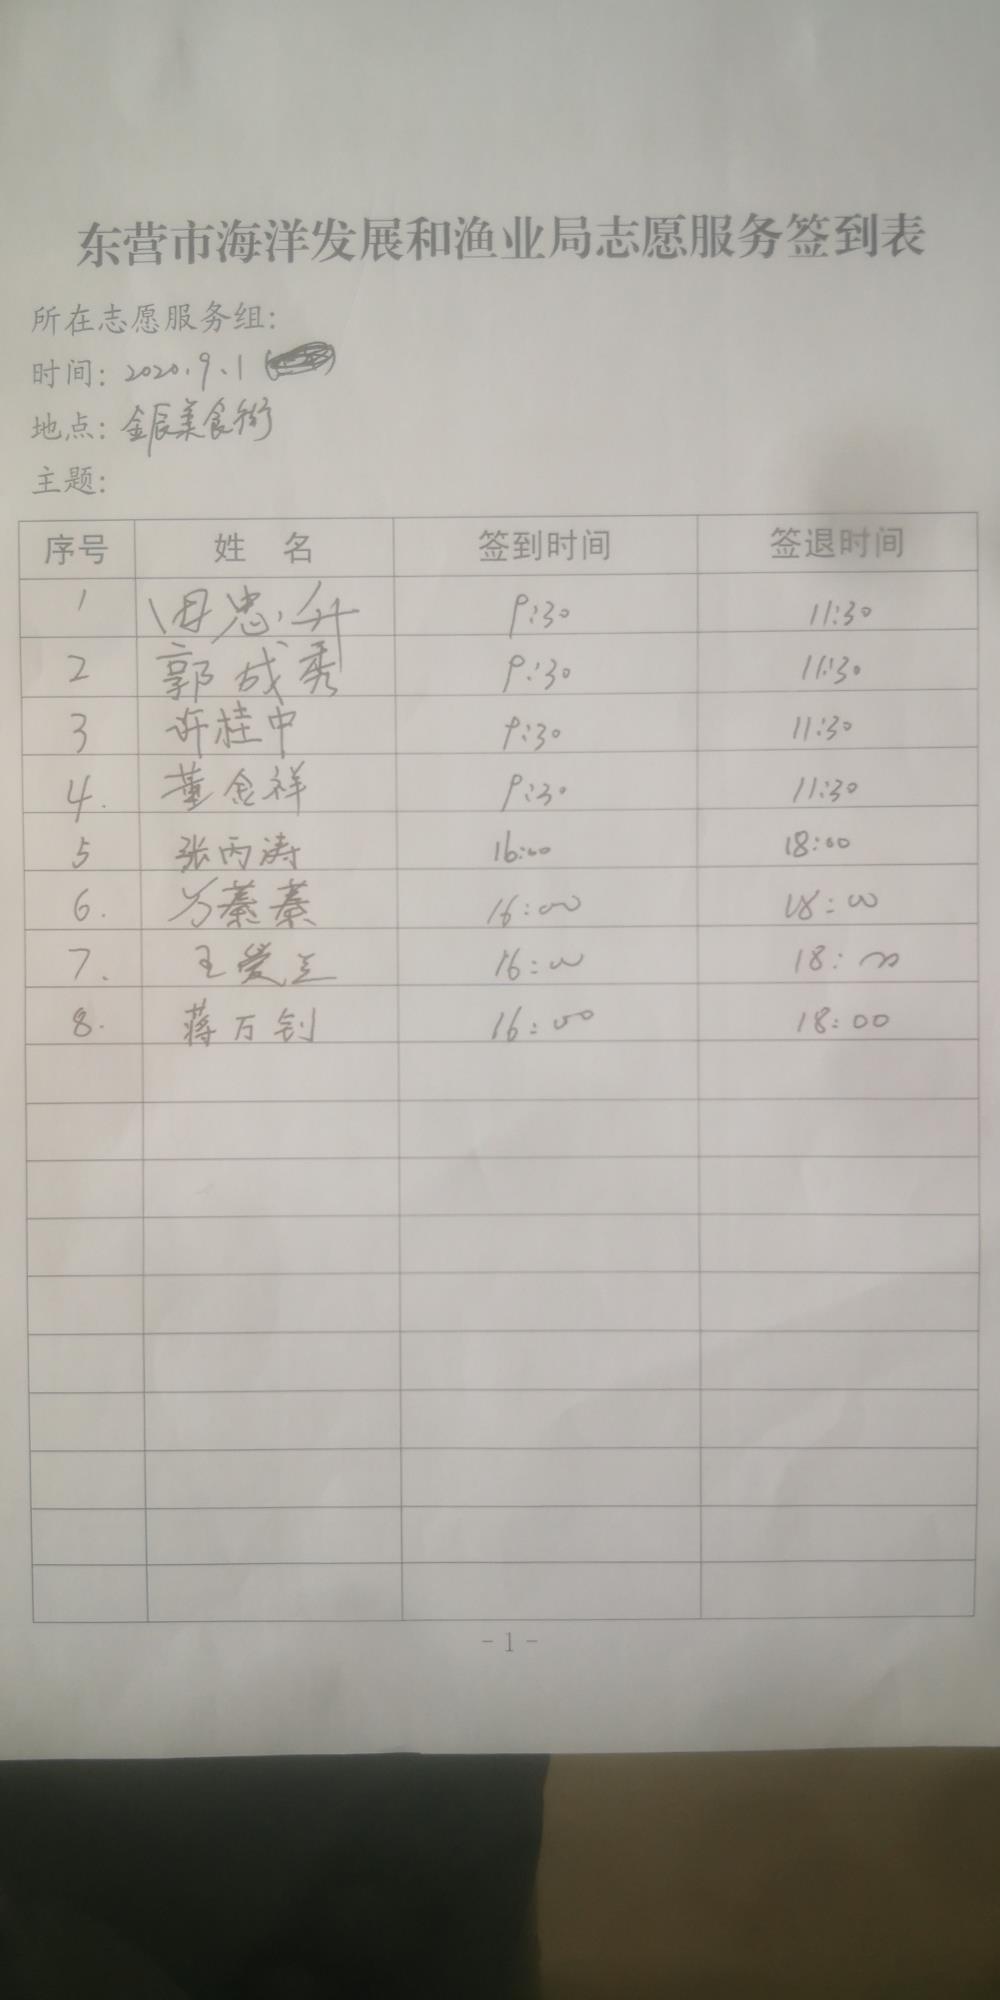 东营市海洋发展和渔业局志愿服务签到表
所在志愿服务组：
时间：2020.9.1
地点：金辰美食街
主题：
序号 姓 名 签到时间 签退时间
1 田忠升 9:30 11:30
2 郭成秀 9:30 11:30
3 许桂中 9:30 11:30
4. 董金祥 9:30 11:30
5 张丙涛 16:00 18:00
6. 蓁蓁 16:00 18:00
7. 王爱兰 16:00 18:00
8. 蒋万钊 16:00 18:00
- 1 -